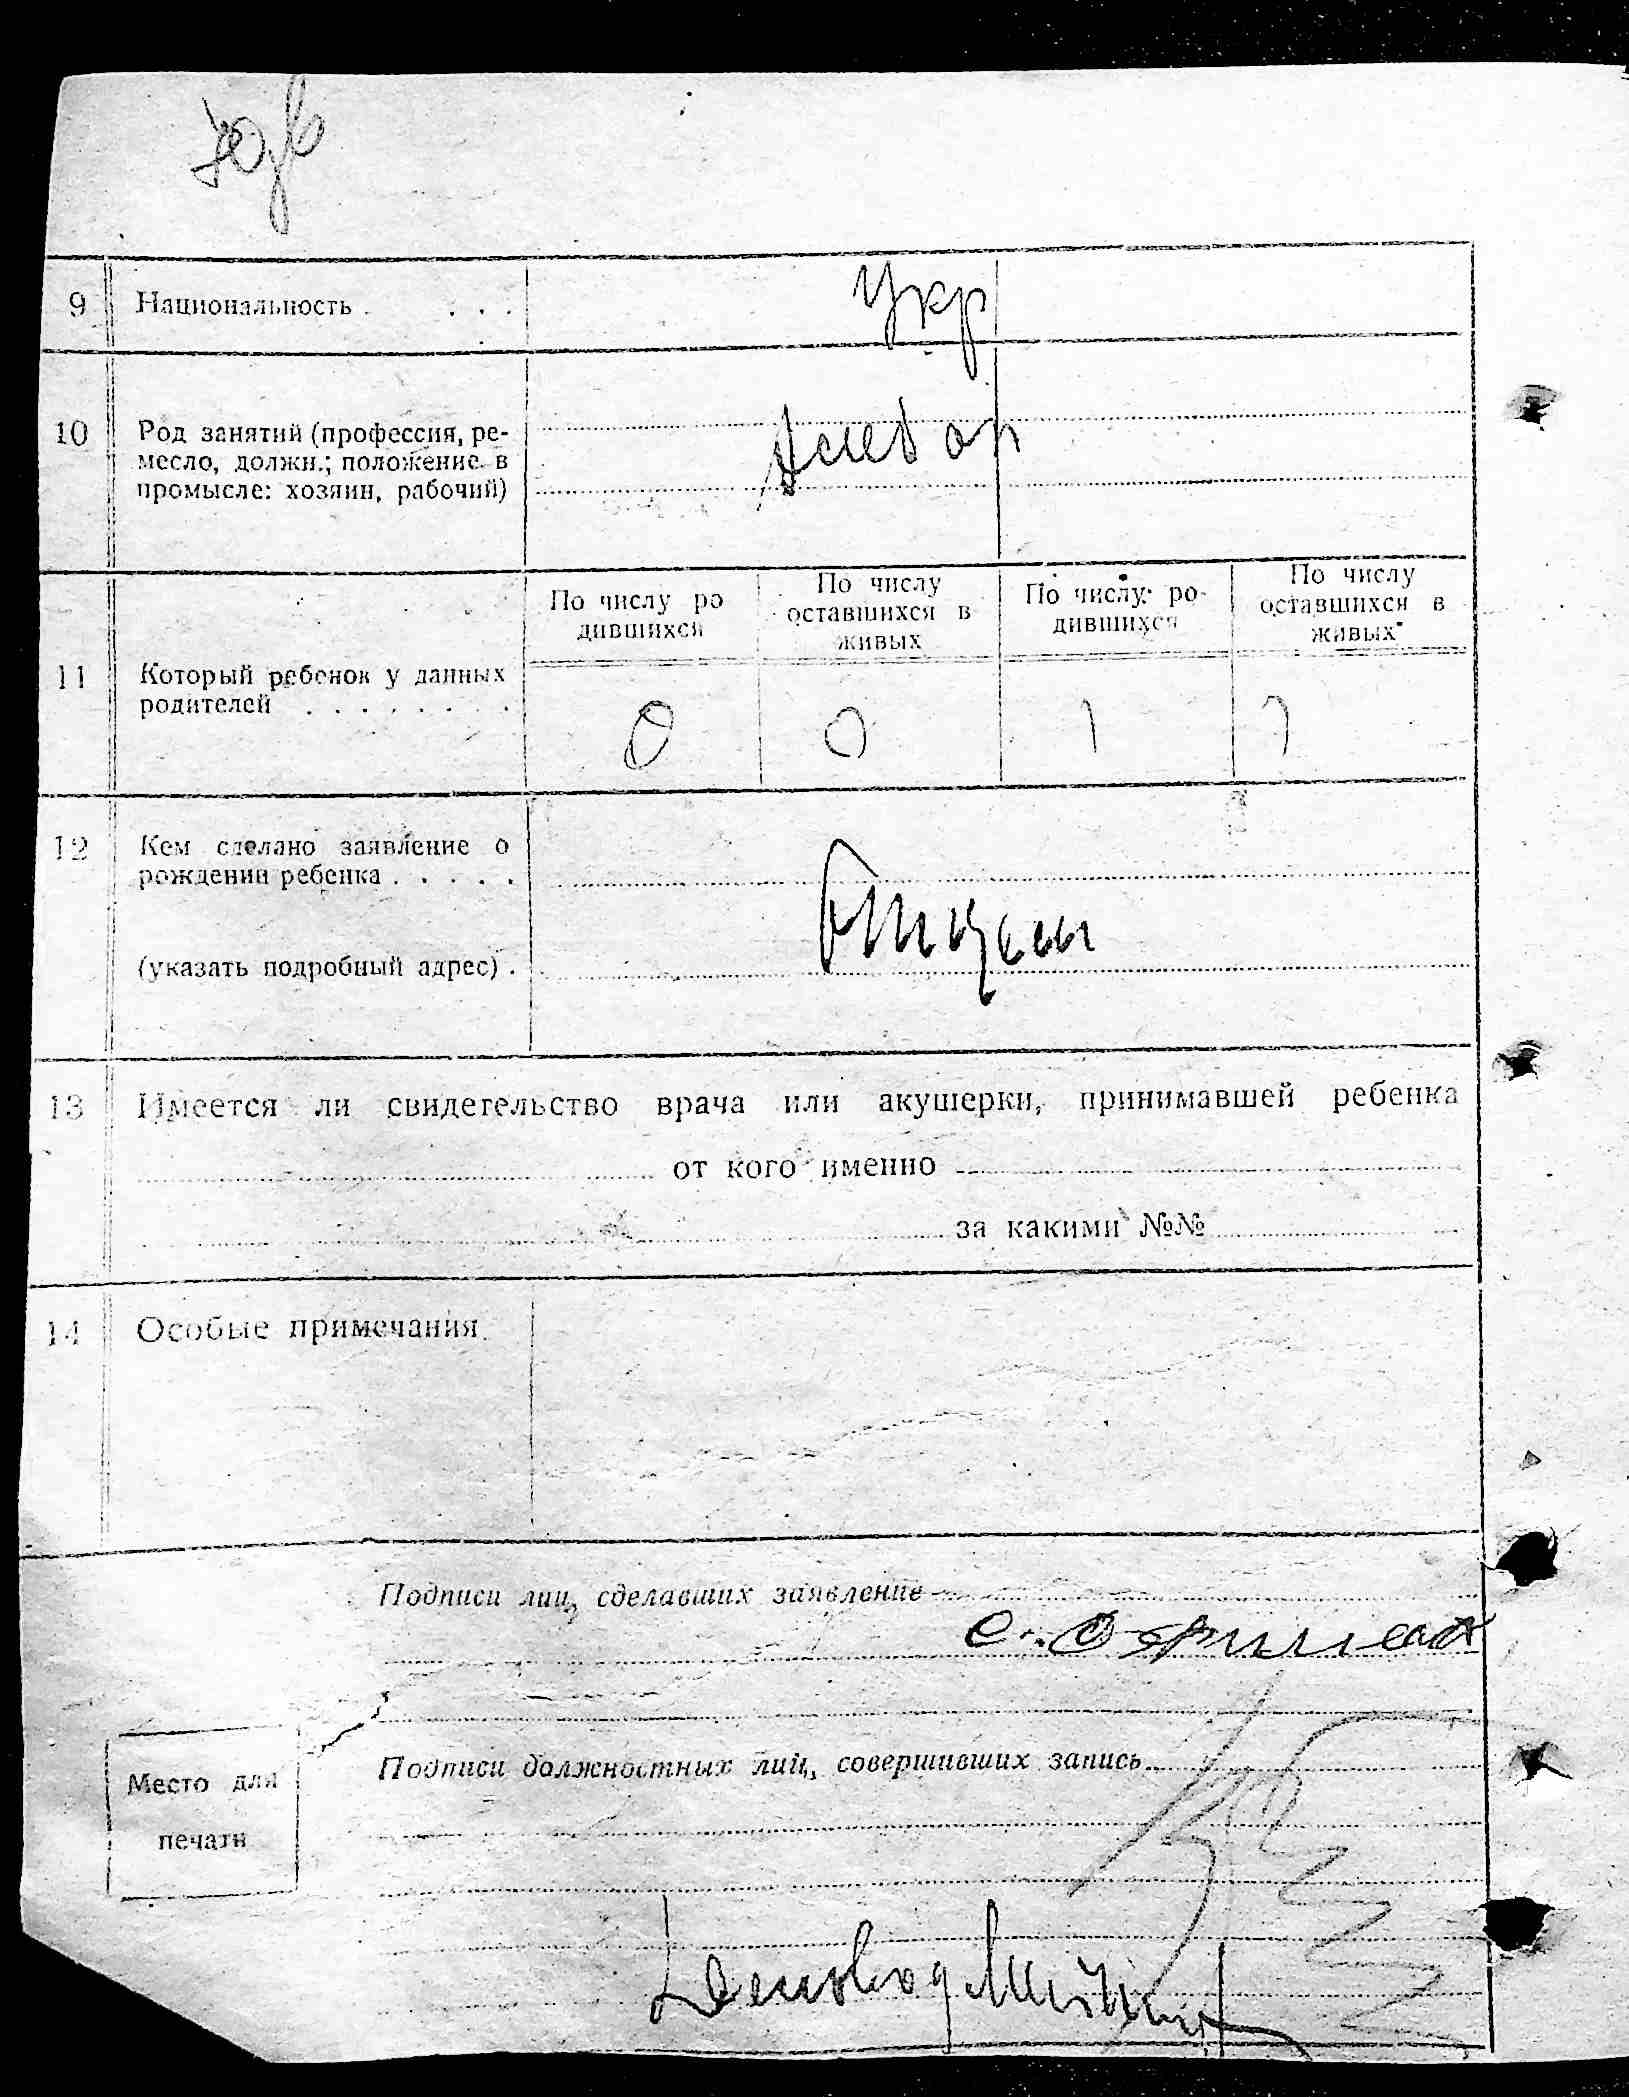 9 Национальность . . . . Укр
10 Род занятий (профессия, ре-
месло, должн.; положение в
промысле: хозяин, рабочий)
По числу ро
дившихся
По числу
оставшихся в
живых
По числу ро-
дившихся
По числу
оставшихся в
живых
11 Который ребенок у данных
родителей . . . . . . . .
0 0 1 1
12 Кем сделано заявление о
рождении ребенка . . . . .
(указать подробный адрес) .
13 Имеется ли свидетельство врача или акушерки, принимавшей ребенка
от кого именно
за какими №№
14 Особые примечания.
Подписи лиц, сделавших заявление
Подписи должностных лиц, совершивших запись
Место для
печати